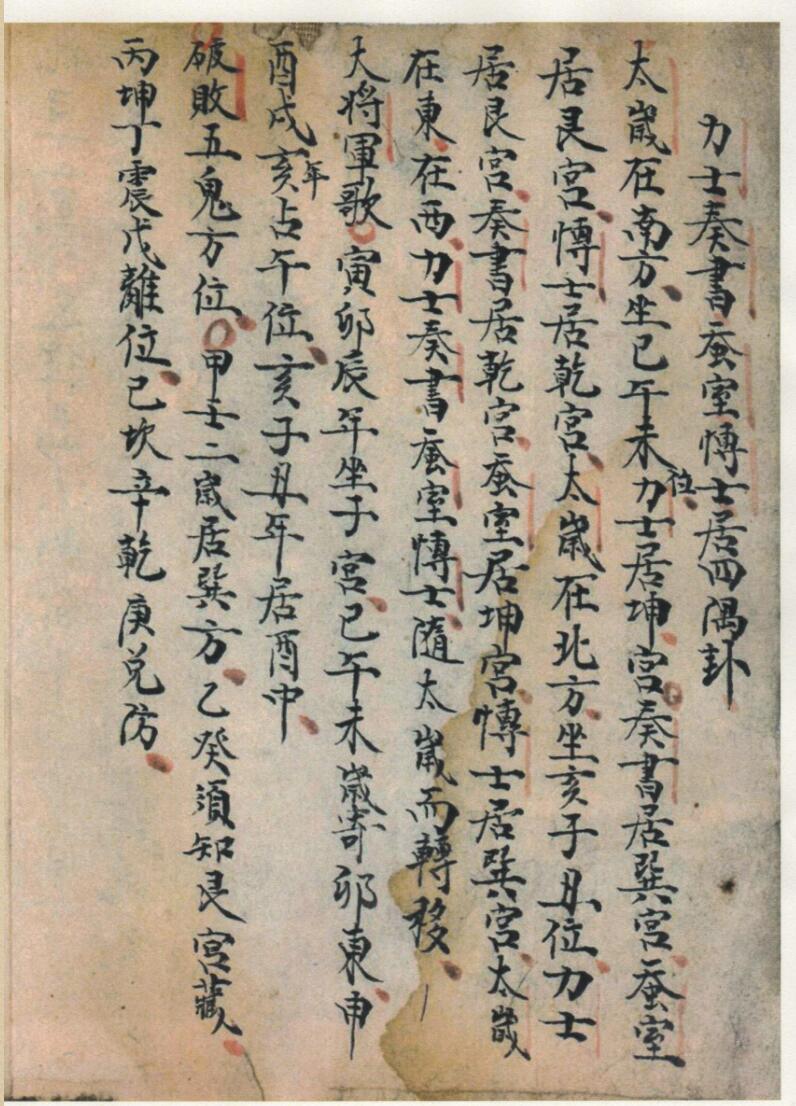 力士奏書蚕室愽士居四隅卦
太歲在南方坐巳午未位力士居坤宮奏書居巽宮蚕室
居艮宮愽士居乾宮太歲在北方坐亥子丑位力士
居艮宮奏書居乾宮蚕室居坤宮愽士居巽宮太歲
在東在西力士奏書蚕室愽士隨太歲而轉移
大将軍歌寅卯辰年坐子宮巳午未歲寄卯東申
酉戌亥年占午位亥子丑年居酉中
破敗五鬼方位甲壬二歲居巽方乙癸須知艮宮藏
丙坤丁震戊離位己坎辛乾庚兌防